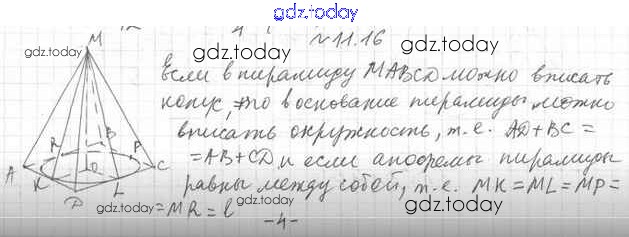 gdz.today
gdz.today gdz.today gdz.today
№11.16
Если в пирамиду MABCD можно вписать
конус, то в основание пирамиды можно
вписать окружность, т.е. AD+BC=
=AB+CD, и если апофемы пирамиды
равны между собой, т.е. MK=ML=MP=
=MR=l
-4-
gdz.today gdz.today gdz.today
M
R B P
A O C
K L
D